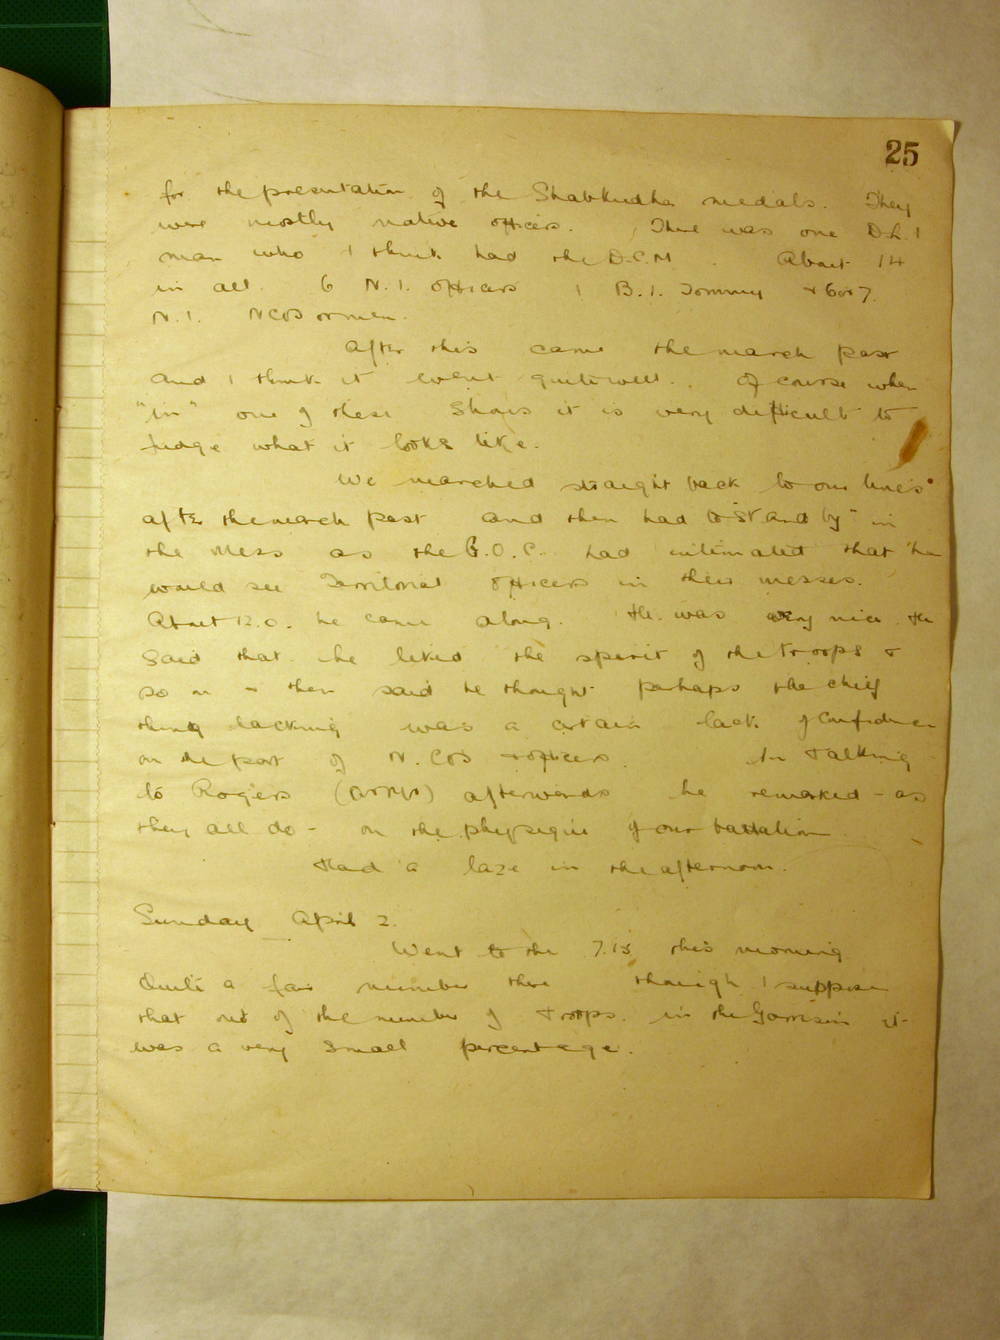 25
for the presentation of the Shabkudha medals. They
were mostly native officers. There was one D.L.I
man who I think had the D.C.M. About 14
in all. 6 N.I. officers 1 B.I. Tommy + 6 or 7
N.I. NCOs or men.
After this came the march past
and I think it went quite well. Of course when
"in" one of these shows it is very difficult to
judge what it looks like.
We marched straight back to our lines
after the march past and then had to "stand by" in
the Mess as the G.O.C. had intimated that he
would see Territorial officers in their messes.
About 12.0. he came along. He was very nice. He
said that he liked the spirit of the troops &
so on & then said he thought perhaps the chief
thing lacking was a certain lack of confidence
on the part of N.COs + officers. In talking
to Rogers afterwards he remarked - as
they all do - on the physique of our battalion.
Had a laze in the afternoon.
Sunday April 2.
Went to the 7.15 this morning
Quite a fair number there though I suppose
that out of the number of troops in the Garrison it
was a very small percentage.